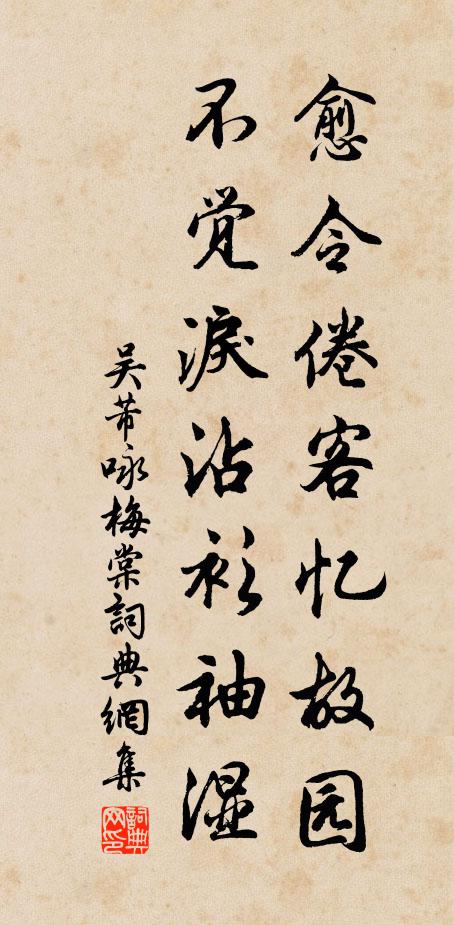 愈令倦客忆故园
不觉淚沾衫袖湿
吴芾咏梅棠詞典網集
詞典网印